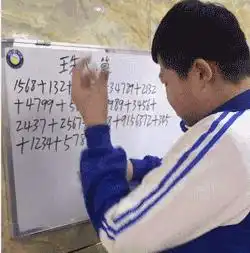 珠 算
1568+132+ 34789+2132
+4799+5 989+3456+
2437+2567 +9156872+345
+1234+578